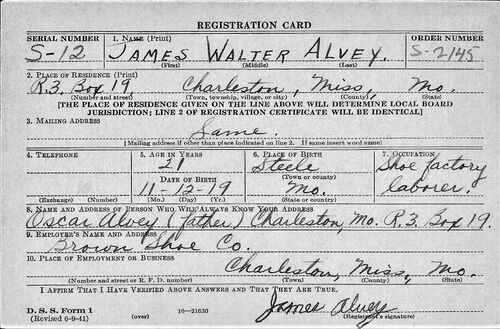 REGISTRATION CARD
SERIAL NUMBER 1. NAME (Print) ORDER NUMBER
S-12 JAMES WALTER ALVEY. S-2145
(First) (Middle) (Last)
2. PLACE OF RESIDENCE (Print)
R.3. Box 19, Charleston, Miss, Mo.
(Number and street) (Town, township, village, or city) (County) (State)
[THE PLACE OF RESIDENCE GIVEN ON THE LINE ABOVE WILL DETERMINE LOCAL BOARD
JURISDICTION; LINE 2 OF REGISTRATION CERTIFICATE WILL BE IDENTICAL]
3. MAILING ADDRESS
Same.
[Mailing address if other than place indicated on line 2. If same insert word same]
4. TELEPHONE 5. AGE IN YEARS 6. PLACE OF BIRTH 7. OCCUPATION
21 Steele Shoe factory
DATE OF BIRTH (Town or county)
11-12-19 Mo. laborer.
(Exchange) (Number) (Mo.) (Day) (Yr.) (State or country)
8. NAME AND ADDRESS OF PERSON WHO WILL ALWAYS KNOW YOUR ADDRESS
Oscar Alvey (Father) Charleston, Mo. R.3. Box 19.
9. EMPLOYER'S NAME AND ADDRESS
Brown Shoe Co.
10. PLACE OF EMPLOYMENT OR BUSINESS
Charleston, Miss, Mo.
(Number and street or R. F. D. number) (Town) (County) (State)
I AFFIRM THAT I HAVE VERIFIED ABOVE ANSWERS AND THAT THEY ARE TRUE.
D. S. S. Form 1 James Alvey
(Revised 6-9-41) (over) 16-21630 (Registrant's signature)